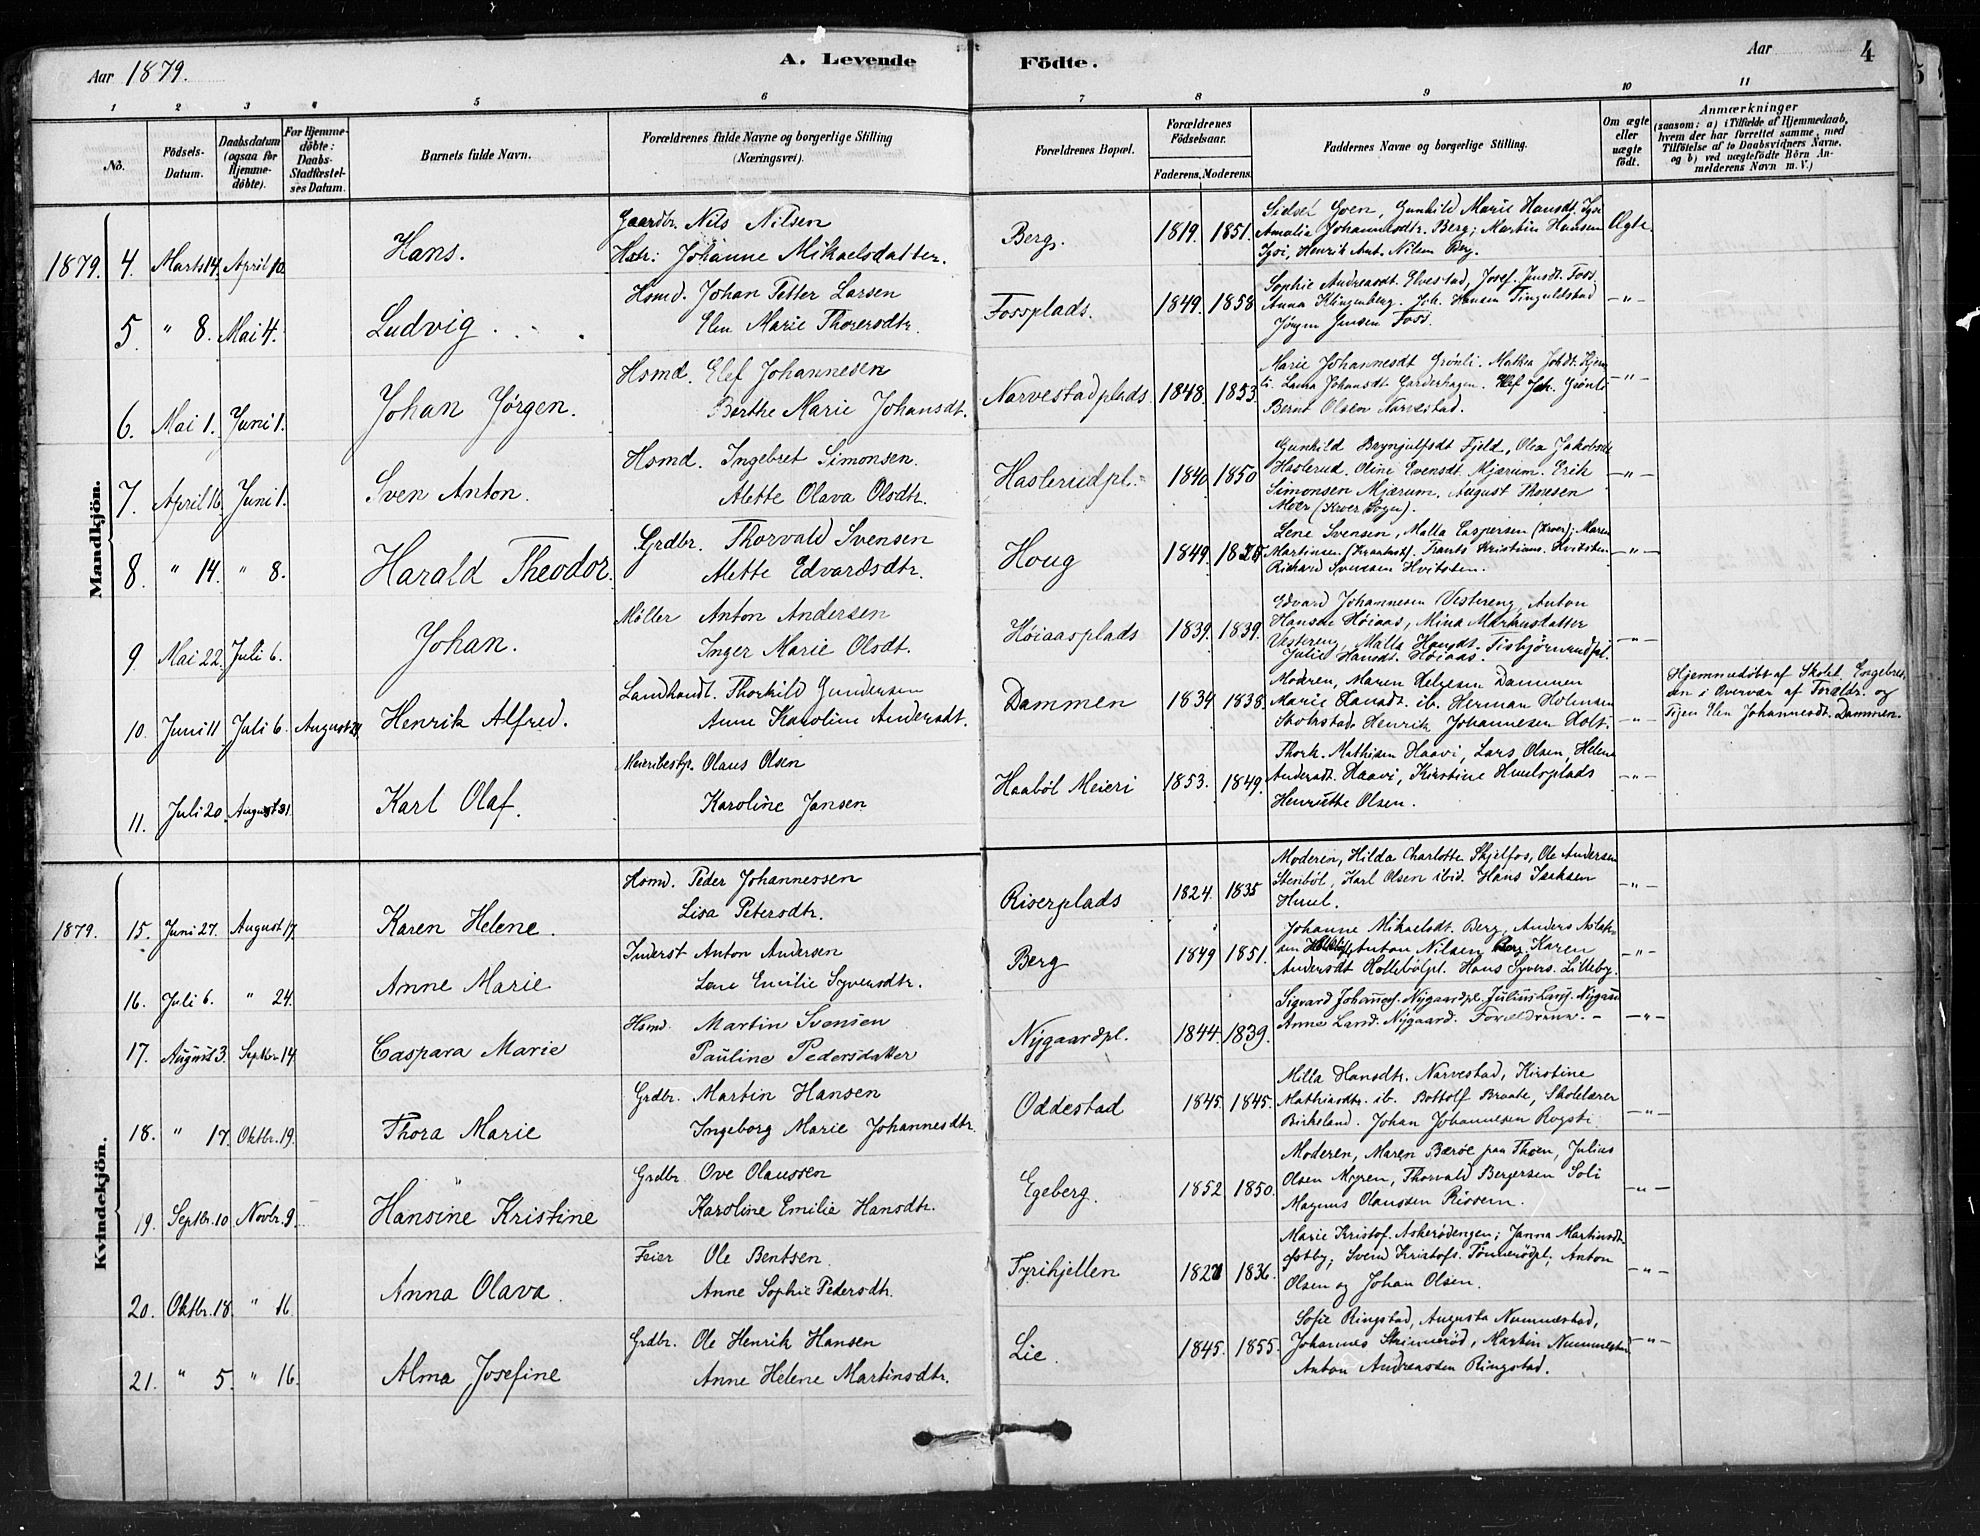 Aar 1879.
A. Levende Födte.
Aar
4
5
1 2 3 4 5 6 7 8 9 10 11
No.
Födsels-Datum.
Daabsdatum (ogsaa for Hjemme-döbte).
For Hjemme-döbte: Daabs-Stadfæstel-ses Datum.
Barnets fulde Navn.
Forældrenes fulde Navne og borgerlige Stilling (Næringsvei).
Forældrenes Bopæl.
Forældrenes Födselsaar.
Faderens. Moderens.
Faddernes Navne og borgerlige Stilling.
Om ægte eller uægte födt.
Anmærkninger
(saasom: a) i Tilfælde af Hjemmedaab, hvem der har forrettet samme, med Tilföielse af to Daabsvidners Navne, og b) ved uægtefödte Börn An-melderens Navn m. V.)
Mandkjön.
1879. 4. Marts 14. April 10. Hans.
Gaardbr. Nils Nilsen
Hstr: Johanne Mikaelsdatter.
Berg. 1819. 1851.
Sidsel Goen, Gunhild Marie Hansdt. Tysi
Amalia Johannesdtr. Berg; Martin Hansen
Tysi, Henrik Ant. Nilsen Berg.
Ægte.
5. " 8. Mai 4. Ludvig
Hsmd. Johan Petter Larsen
Elen Marie Thorersdtr.
Fossplads. 1849. 1858
Sophie Andreasdt. Elvestad, Josef. Jensdt. Foss.
Anna Klingenberg. Joh. Hansen Tinguldstad
Jørgen Jensen Foss.
— " —
6. Mai 1. Juni 1. Johan Jørgen.
Hsmd. Elef Johannesen
Berthe Marie Johansdt.
Narvestadplads 1848. 1853
Marie Johannesdt Grönli. Mathea Johdt. Hjem
li. Laura Johansdt Garderhagen. Elef Joh. Grönli
Bernt Olsen Narvestad.
— " —
7. April 16. Juni 1. Sven Anton.
Hsmd. Ingebret Simonsen.
Alette Olava Olsdtr.
Haslerudpl. 1840 1850
Gunhild Brynjulfsdt Fjeld, Olea Jakobsdt
Haslerud. Oline Evensdt. Mjærum. Erik
Simonsen Mjærum. August Thoresen
Moer (Kroer Sogn).
— " —
8. " 14. " 8. Harald Theodor.
Grdbr. Thorvald Svensen
Alette Edvardsdtr.
Houg 1849.
Lene Svensen, Malla Caspersen (Kroer); Maren
Martinsen (Kraakst). Frants Kristians. Hvitsten
Richard Svensen Hvitsten.
— " —
9. Mai 22. Juli 6. Johan.
Møller Anton Andersen
Inger Marie Olsdt.
Høiaasplads 1839. 1839.
Edvard Johannesen Vestereng, Anton
Hansen Høiaas, Mina Markusdatter
Vestereng, Malla Hansdt.
Julie Hansdt. Høiaas.
— " —
10. Juni 11. Juli 6. Henrik Alfred.
Landhandl. Thorkild Gundersen
Anne Karoline Andersdt.
Dammen 1834 1838.
Moderen, Maren Helgesen Dammen
Marie Hansdt. ib. Herman Holmsen
Stokstad. Henrik Johannesen Holt.
— " —
Hjemmedöbt af Skolel. Engebret
sen i Overvær af Forældr. og
Pigen Elen Johannesdt. Dammen.
11. Juli 20. August 31. Karl Olaf.
Meieribestyr. Olaus Olsen
Karoline Jansen
Haaböl Meieri 1853. 1849.
Thork. Mathisen Haavi, Lars Olsen, Helene
Andersdt. Haavi, Kirstine Huulsplads
Henriette Olsen.
— " —
Kvindekjön.
1879. 15. Juni 27. August 17. Karen Helene.
Hsmd. Peder Johannessen
Lisa Petersdtr.
Riserplads 1824. 1835
Moderen, Hilda Charlotte Skjelfos, Ole Andersen
Stenböl, Karl Olsen ibid. Hans Isaksen
Huul.
— " —
16. Juli 6. " 24. Anne Marie
Inderst Anton Andersen
Lene Emilie Syversdtr.
Berg 1849 1851.
Johanne Mikaelsdt. Berg, Anders Aslak
sen Anton Nilsen Berg, Karen
Andersdt Holleböl pl. Hans Syvers. Lilleby.
— " —
17. August 3. Septbr. 14. Caspara Marie
Hsmd. Martin Svensen
Pauline Pedersdatter
Nygaardpl. 1844. 1839.
Sigvard Johannes. Nygaardpl. Julius Larss. Nygaard
Anne Land. Nygaard. Forældrene.
— " —
18. " 17. Oktbr. 19. Thora Marie
Grdbr. Martin Hansen
Ingeborg Marie Johannesdtr.
Oddestad 1845. 1845.
Milla Hansdtr. Narvestad, Kirstine
Mathisdtr. ib. Bottolf Braate, Skolelærer
Birkeland. Johan Johannesen Rogsti.
— " —
19. Septbr. 10. Novbr. 9. Hansine Kristine
Grdbr. Ove Olaussen
Karoline Emilie Hansdtr.
Egeberg. 1852. 1850.
Moderen, Maren Bæröe paa Thoen, Julius
Olsen Myren, Thorvald Bergersen Soli
Magnus Olaussen Rissem.
— " —
20. Oktbr. 18. " 16. Anna Olava.
Feier Ole Bentsen.
Anne Sophie Pedersdtr.
Fyrihjellen 1836.
Marie Kristof. Askerödengen; Janna Martinsdt.
Østby; Svend Kristofs. Tönnerödpl; Anton
Olsen og Johan Olsen.
— " —
21. " 5. " 16. Alma Josefine
Grdbr. Ole Henrik Hansen
Anne Helene Martinsdtr.
Lie. 1845. 1855.
Sofie Ringstad, Augusta Nummestad,
Johannes Skinneröd, Martin Nummestad
Anton Andreassen Ringstad.
— " —